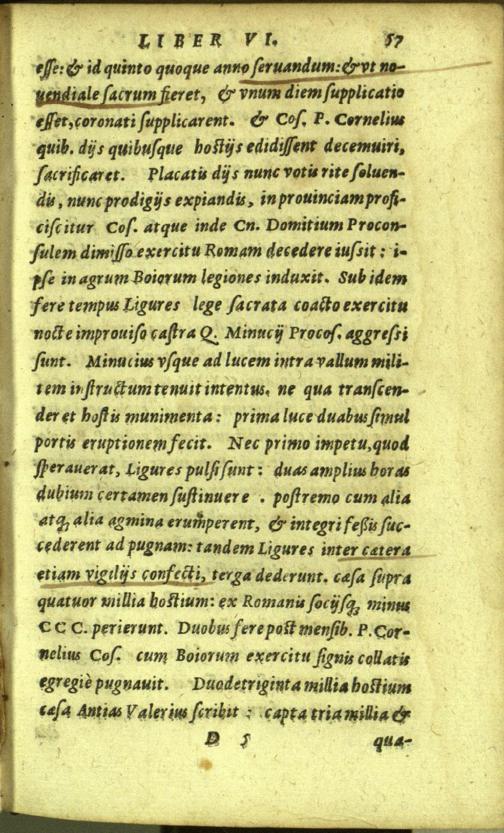 LIBER VI. 57
esse: & id quinto quoque anno seruandum: & vt no-
uendiale sacrum fieret, & vnum diem supplicatio
esset, coronati supplicarent. & Cos. P. Cornelius
quib. dijs quibusque hostijs edidissent decemuiri,
sacrificaret. Placatis dijs nunc votis rite soluen-
dis, nunc prodigijs expiandis, in prouinciam profi-
ciscitur Cos. atque inde Cn. Domitium Procon-
sulem dimisso exercitu Romam decedere iussit: i-
pse in agrum Boiorum legiones induxit. Sub idem
fere tempus Ligures lege sacrata coacto exercitu
nocte improuiso castra Q. Minucij Procos. aggressi
sunt. Minucius vsque ad lucem intra vallum mili-
tem instructum tenuit intentus, ne qua transcen-
deret hostis munimenta: prima luce duabus simul
portis eruptionem fecit. Nec primo impetu, quod
sperauerat, Ligures pulsi sunt: duas amplius horas
dubium certamen sustinuere. postremo cum alia
atq; alia agmina erumperent, & integri feßis suc-
cederent ad pugnam: tandem Ligures inter cætera
etiam vigilijs confecti, terga dederunt. cæsa supra
quatuor millia hostium: ex Romanis socijsq; minus
CCC. perierunt. Duobus fere post mensib. P. Cor-
nelius Cos. cum Boiorum exercitu signis collatis
egregiè pugnauit. Duodetriginta millia hostium
cæsa Antias Valerius scribit: capta tria millia &
D 5 qua-